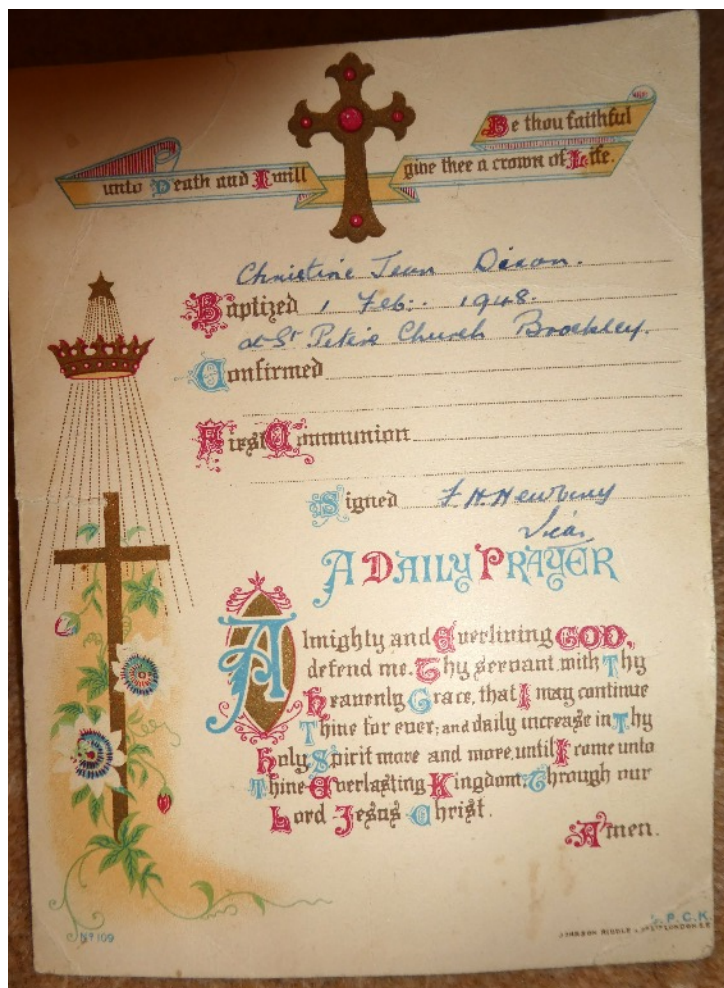 Be thou faithful
unto Death and I will give thee a crown of Life.
Christine Jean Dixon.
Baptized 1 Feb: 1948.
at St Peters Church Brockley.
Confirmed
First Communion
Signed F.H. Newbury
Vicar
A DAILY PRAYER
Almighty and Everliving GOD,
defend me, Thy servant, with Thy
Heavenly Grace, that I may continue
Thine for ever; and daily increase in Thy
Holy Spirit more and more, until I come unto
Thine Everlasting Kingdom, Through our
Lord Jesus Christ.
Amen.
Nº 109
S.P.C.K.
RIDDLE LONDON S.E.